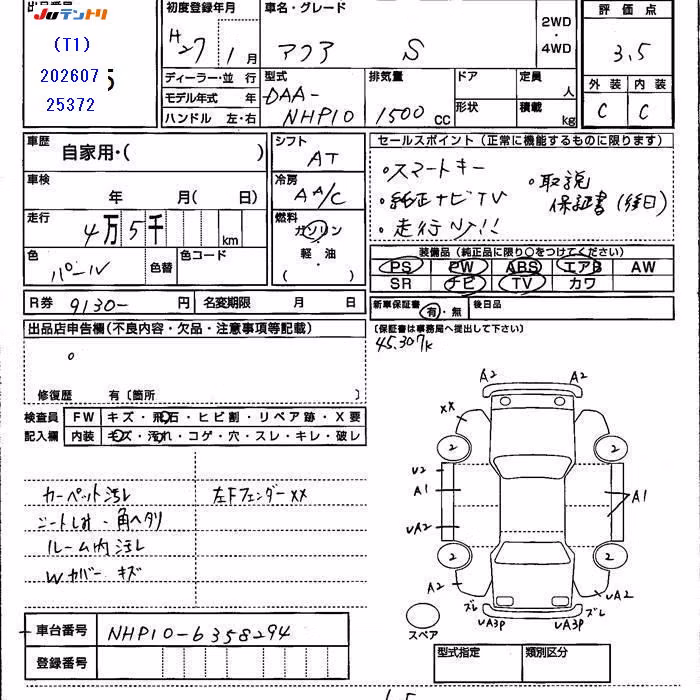 JUテントリ
(T1)
202607
25372
初度登録年月
H27 1月
車名・グレード
アクア S
2WD
・
4WD
評価点
3.5
外装 内装
C C
ディーラー・並行
モデル年式 年
ハンドル 左・右
型式
DAA-
NHP10
排気量
1500 cc
ドア
形状
定員
人
積載
kg
車歴
自家用・( )
車検
年 月( 日)
走行
4万5千 km
色
パール
色替
色コード
シフト
AT
冷房
AA/C
燃料
ガソリン
・
軽・油
( )
セールスポイント(正常に機能するものに限ります)
・スマートキー
・純正ナビTV
・走行少!!
・取説
保証書(後日)
装備品(純正品に限り○をつけてください)
PS PW ABS エアB AW
SR ナビ TV カワ
R券 9130- 円 名変期限 月 日
新車保証書 有・無 後日品
(保証書は事務局へ提出して下さい)
45.307k
出品店申告欄(不良内容・欠品・注意事項等記載)
修復歴 有〔箇所 〕
検査員
記入欄
FW キズ・飛石・ヒビ割・リペア跡・X要
内装 キズ・汚れ・コゲ・穴・スレ・キレ・破レ
カーペット汚レ
シートしみ・角ヘタリ
ルーム内汚レ
Wカバー キズ
左Fフェンダー XX
A2 A2
XX
2 2
U2
A1 A1
UA2
2 2
A2 UA2
ズレ ズレ
UA3P UA3P
スペア
車台番号 NHP10-6358294
登録番号
型式指定 類別区分